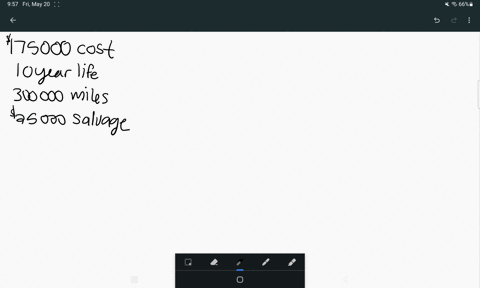 9:57 Fri, May 20
66%
$175000 cost
10 year life
300000 miles
$25000 salvage